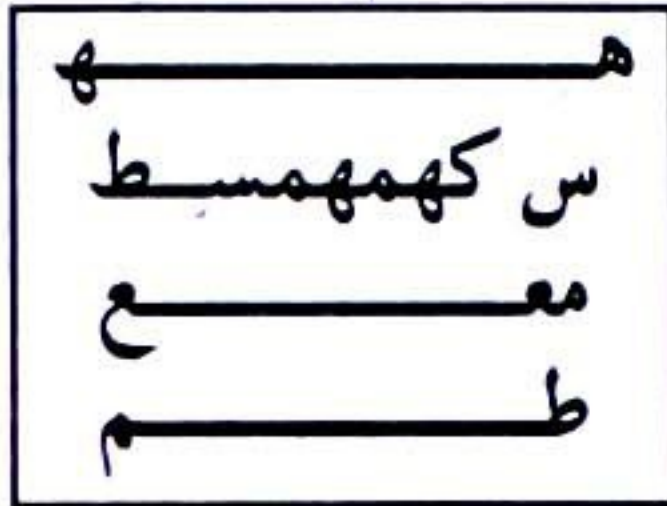 هــــــــــــهـ
س كهمهمســط
معــــــــــــع
طــــــــــــم